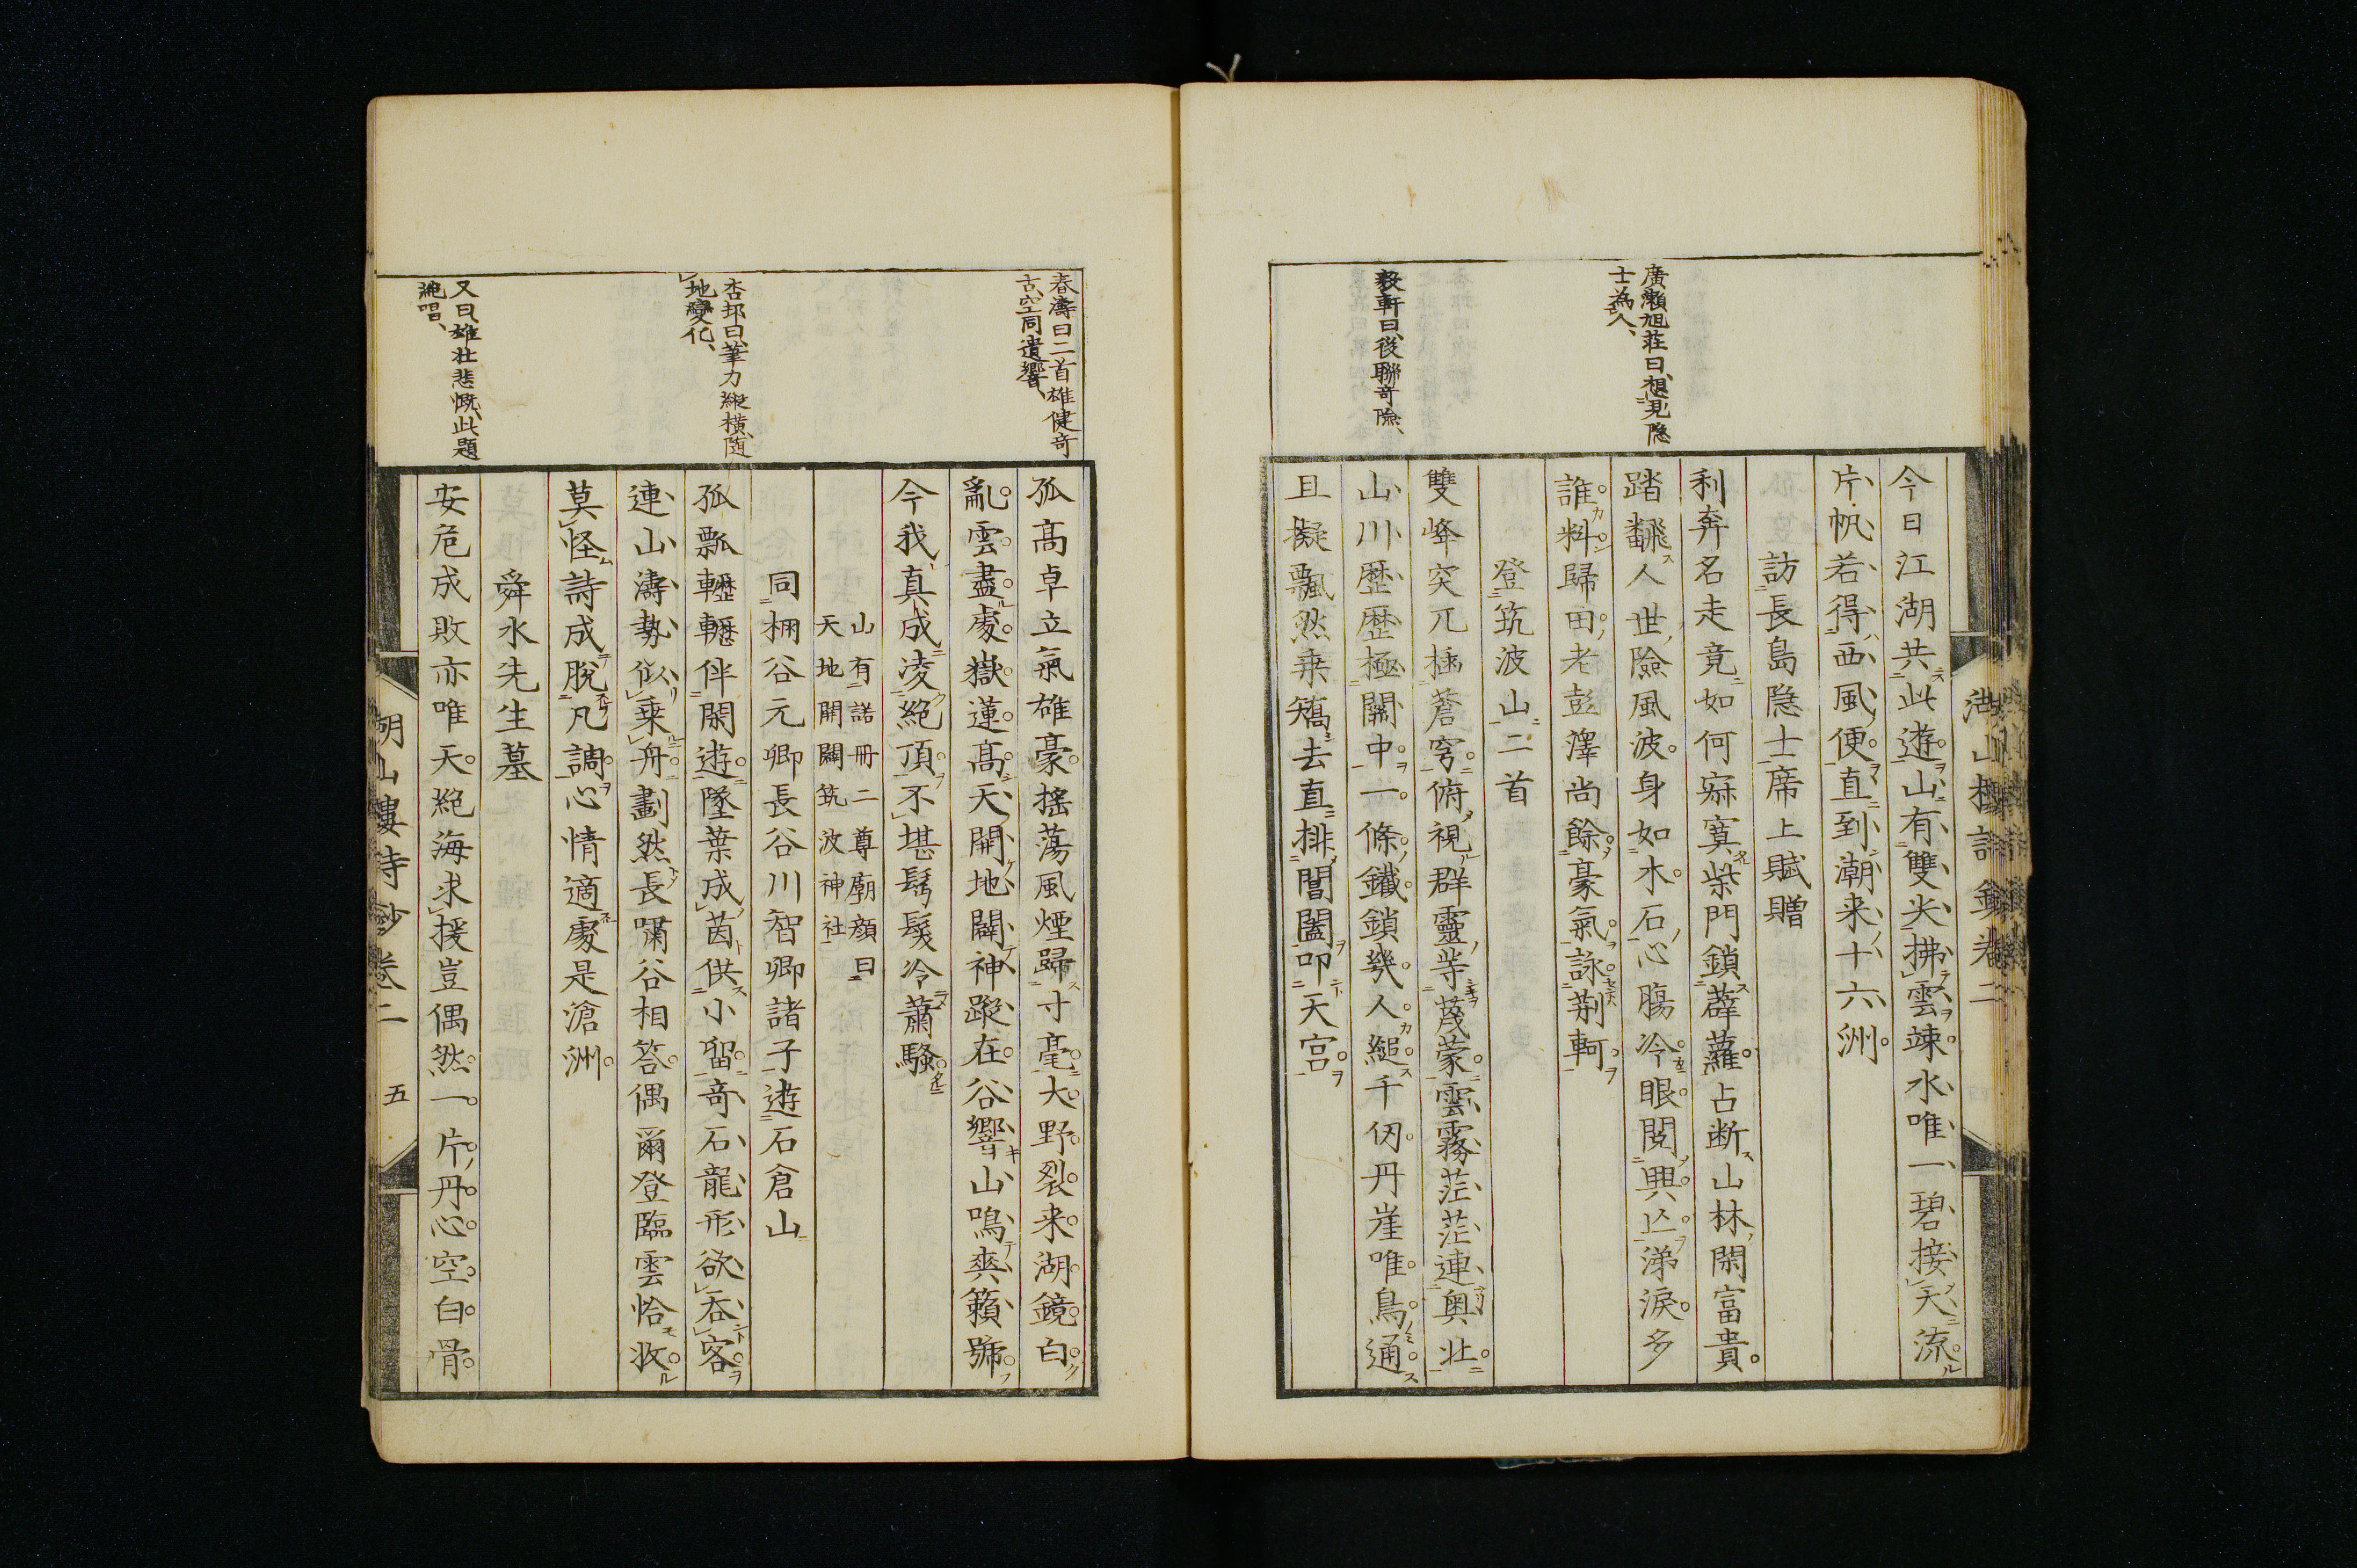 湖山樓詩鈔卷二
今日江湖共此遊山有雙尖拂雲竦水唯一碧接天流
片帆若得西風便直到潮来十六洲
訪長島隠士席上賦贈
利奔名走竟如何寂寞柴門鎖薜蘿占断山林閑富貴
廣瀬旭荘曰想見隠
士為人、
踏翻人世險風波身如木石心腸冷眼閲興亡涕淚多
誰料歸田老彭澤尚餘豪氣詠荆軻
登筑波山二首
雙峰突兀插蒼穹俯視群靈等蔑蒙雲霧茫茫連奥壮
毅軒曰後聯奇險、
山川歴歴極關中一條鐵鎖幾人縋千仭丹崖唯鳥通
且擬飄然乗矯去直排閶闔叩天宮
春濤曰二首雄健奇
古空同遺響、
孤高卓立氣雄豪搖蕩風煙歸寸毫大野裂来湖鏡白
亂雲盡處嶽蓮高天開地闢神蹤在谷響山鳴爽籟號
今我真成凌絶頂不堪髩髮冷蕭騒
山有諾冊二尊廟顔曰
天地開闢筑波神社
同棚谷元卿長谷川智卿諸子遊石倉山
杏邨曰筆力縱横随
地變化、
孤瓢轣轆伴閑遊墜葉成茵供小留奇石龍形欲呑客
連山濤勢似乗舟劃然長嘯谷相答偶爾登臨雲恰收
莫怪詩成脱凡調心情適處是滄洲
舜水先生墓
又曰雄壮悲慨此題
絶唱、
安危成敗亦唯天絶海求援豈偶然一片丹心空白骨
湖山樓詩鈔卷二 五